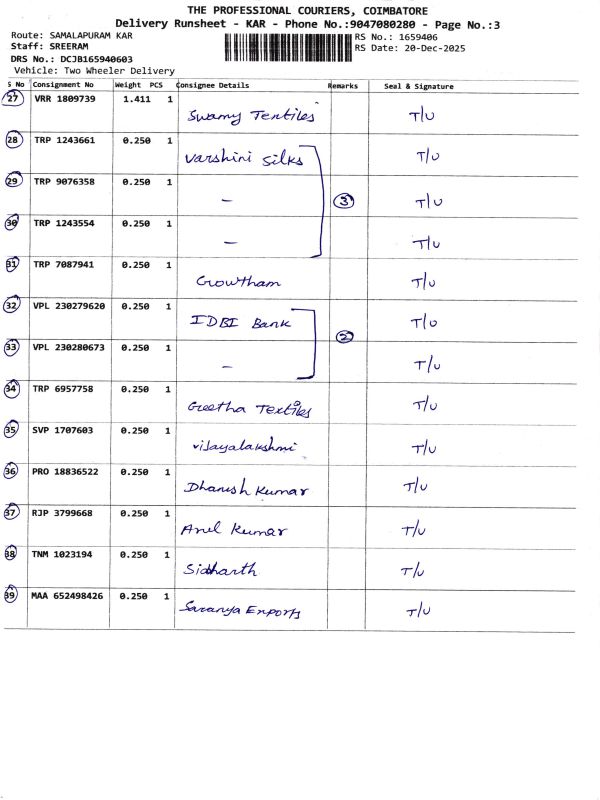 THE PROFESSIONAL COURIERS, COIMBATORE
Delivery Runsheet - KAR - Phone No.:9047080280 - Page No.:3
Route: SAMALAPURAM KAR RS No.: 1659406
Staff: SREERAM RS Date: 20-Dec-2025
DRS No.: DCJB165940603
Vehicle: Two Wheeler Delivery
S No Consignment No Weight PCS Consignee Details Remarks Seal & Signature
27 VRR 1809739 1.411 1 Swamy Textiles T/U
28 TRP 1243661 0.250 1 Varshini Silks T/U
29 TRP 9076358 0.250 1 - 3 T/U
30 TRP 1243554 0.250 1 - T/U
31 TRP 7087941 0.250 1 Growtham T/U
32 VPL 230279620 0.250 1 IDBI Bank T/U
2
33 VPL 230280673 0.250 1 - T/U
34 TRP 6957758 0.250 1 Geetha Textiles T/U
35 SVP 1707603 0.250 1 Vijayalakshmi T/U
36 PRO 18836522 0.250 1 Dhanush Kumar T/U
37 RJP 3799668 0.250 1 Anil Kumar T/U
38 TNM 1023194 0.250 1 Sidharth T/U
39 MAA 652498426 0.250 1 Saranya Exports T/U